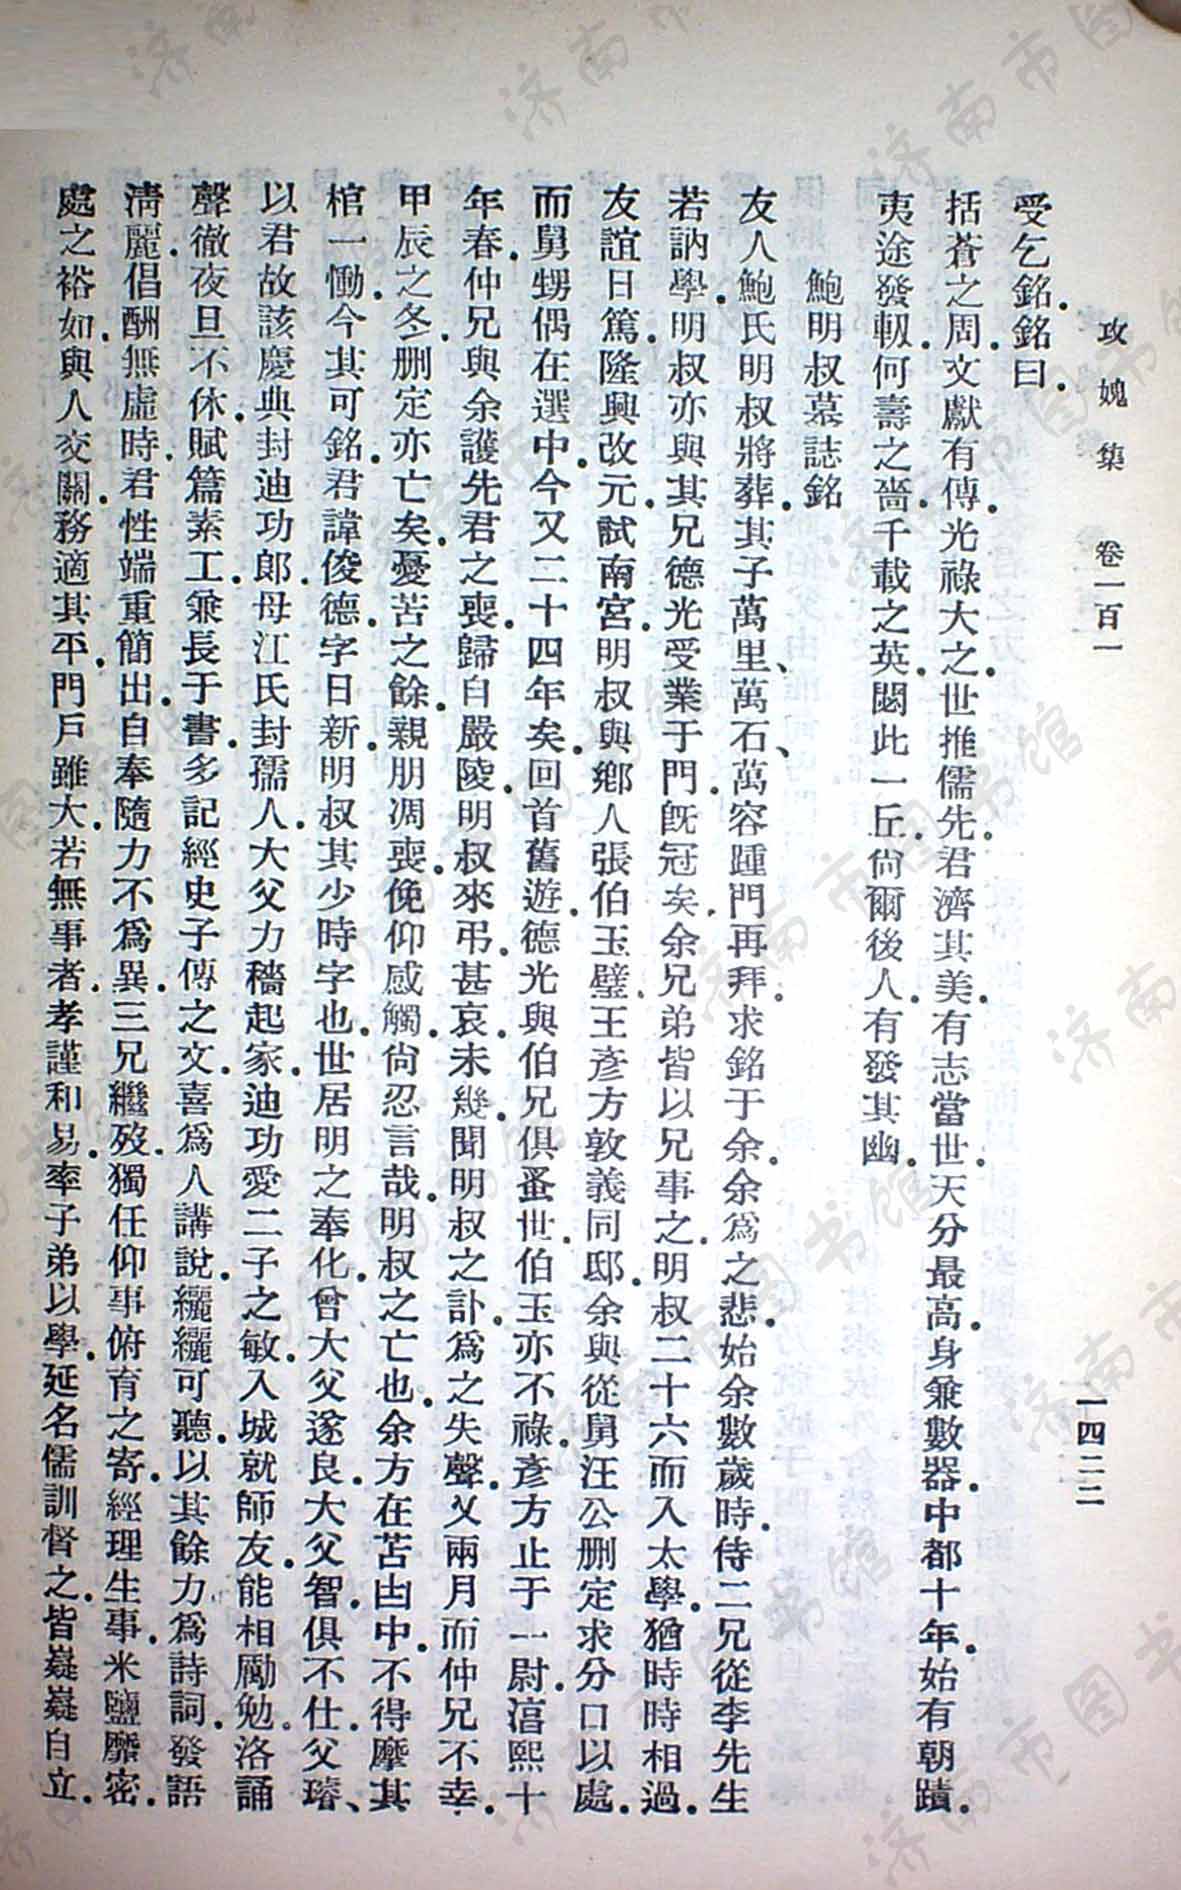 攻媿集 卷一百一 一四二二
受乞銘。銘曰。
括蒼之周。文獻有傳。光祿大之。世推儒先。君濟其美。有志當世。天分最高。身兼數器。中都十年。始有朝蹟。
夷途發軔。何壽之嗇。千載之英。閟此一丘。尙爾後人。有發其幽。
鮑明叔墓誌銘
友人鮑氏明叔將葬。其子萬里、萬石、萬容踵門再拜。求銘于余。余爲之悲。始余數歲時。侍二兄從李先生
若訥學。明叔亦與其兄德光受業于門。旣冠矣。余兄弟皆以兄事之。明叔二十六而入太學。猶時時相過。
友誼日篤。隆興改元。試南宮。明叔與鄉人張伯玉璧、王彥方敦義同邸。余與從舅汪公删定求分口以處。
而舅甥偶在選中。今又二十四年矣。回首舊遊。德光與伯兄俱蚤世。伯玉亦不祿。彥方止于一尉。淳熙十
年春。仲兄與余護先君之喪。歸自嚴陵。明叔來弔。甚哀。未幾。聞明叔之訃。爲之失聲。又兩月而仲兄不幸。
甲辰之冬。删定亦亡矣。憂苦之餘。親朋凋喪。俛仰感觸。尙忍言哉。明叔之亡也。余方在苫甴中。不得靡其
棺一慟。今其可銘。君諱俊德。字日新。明叔其少時字也。世居明之奉化。曾大父遂良。大父智。俱不仕。父璿、
以君故該慶典封迪功郎。母江氏封孺人。大父力穡起家。迪功愛二子之敏。入城就師友。能相勵勉。洛誦
聲徹夜旦不休。賦篇素工。兼長于書。多記經史子傳之文。喜爲人講說。纚纚可聽。以其餘力爲詩詞。發語
淸麗。倡酬無虛時。君性端重簡出。自奉隨力不爲異。三兄繼歿。獨任仰事俯育之寄。經理生事。米鹽靡密。
處之裕如。與人交關。務適其平。門戶雖大。若無事者。孝謹和易。率子弟以學。延名儒訓督之。皆嶷嶷自立。